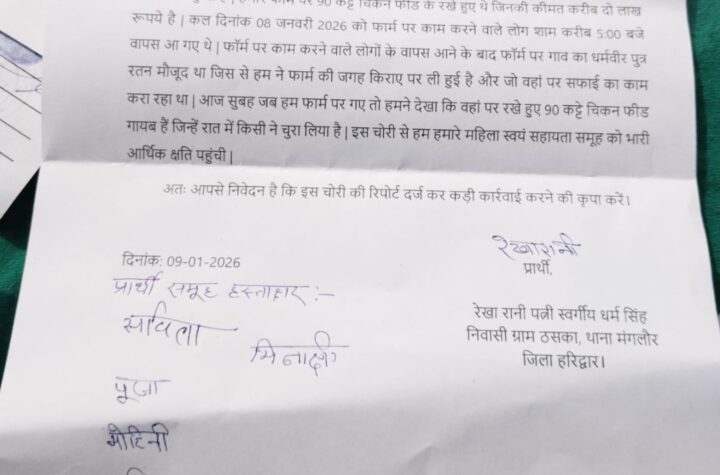 फार्म पर 90 कट्टे चिकन फीड के रखे हुए थे जिनकी कीमत करीब दो लाख
रूपये है | कल दिनांक 08 जनवरी 2026 को फार्म पर काम करने वाले लोग शाम करीब 5:00 बजे
वापस आ गए थे | फॉर्म पर काम करने वाले लोगों के वापस आने के बाद फॉर्म पर गाव का धर्मवीर पुत्र
रतन मौजूद था जिस से हम ने फार्म की जगह किराए पर ली हुई है और जो वहां पर सफाई का काम
करा रहा था | आज सुबह जब हम फार्म पर गए तो हमने देखा कि वहां पर रखे हुए 90 कट्टे चिकन फीड
गायब हैं जिन्हें रात में किसी ने चुरा लिया है | इस चोरी से हम हमारे महिला स्वयं सहायता समूह को भारी
आर्थिक क्षति पहुंची |
अतः आपसे निवेदन है कि इस चोरी की रिपोर्ट दर्ज कर कड़ी कार्रवाई करने की कृपा करें।
रेखा रानी
प्रार्थी,
दिनांक: 09-01-2026
प्रार्थी समूह हस्ताक्षर :-
रेखा रानी पत्नी स्वर्गीय धर्म सिंह
निवासी ग्राम ठसका, थाना मंगलौर
जिला हरिद्वार।
सविता
मिनाक्षी
पूजा
मोहिनी